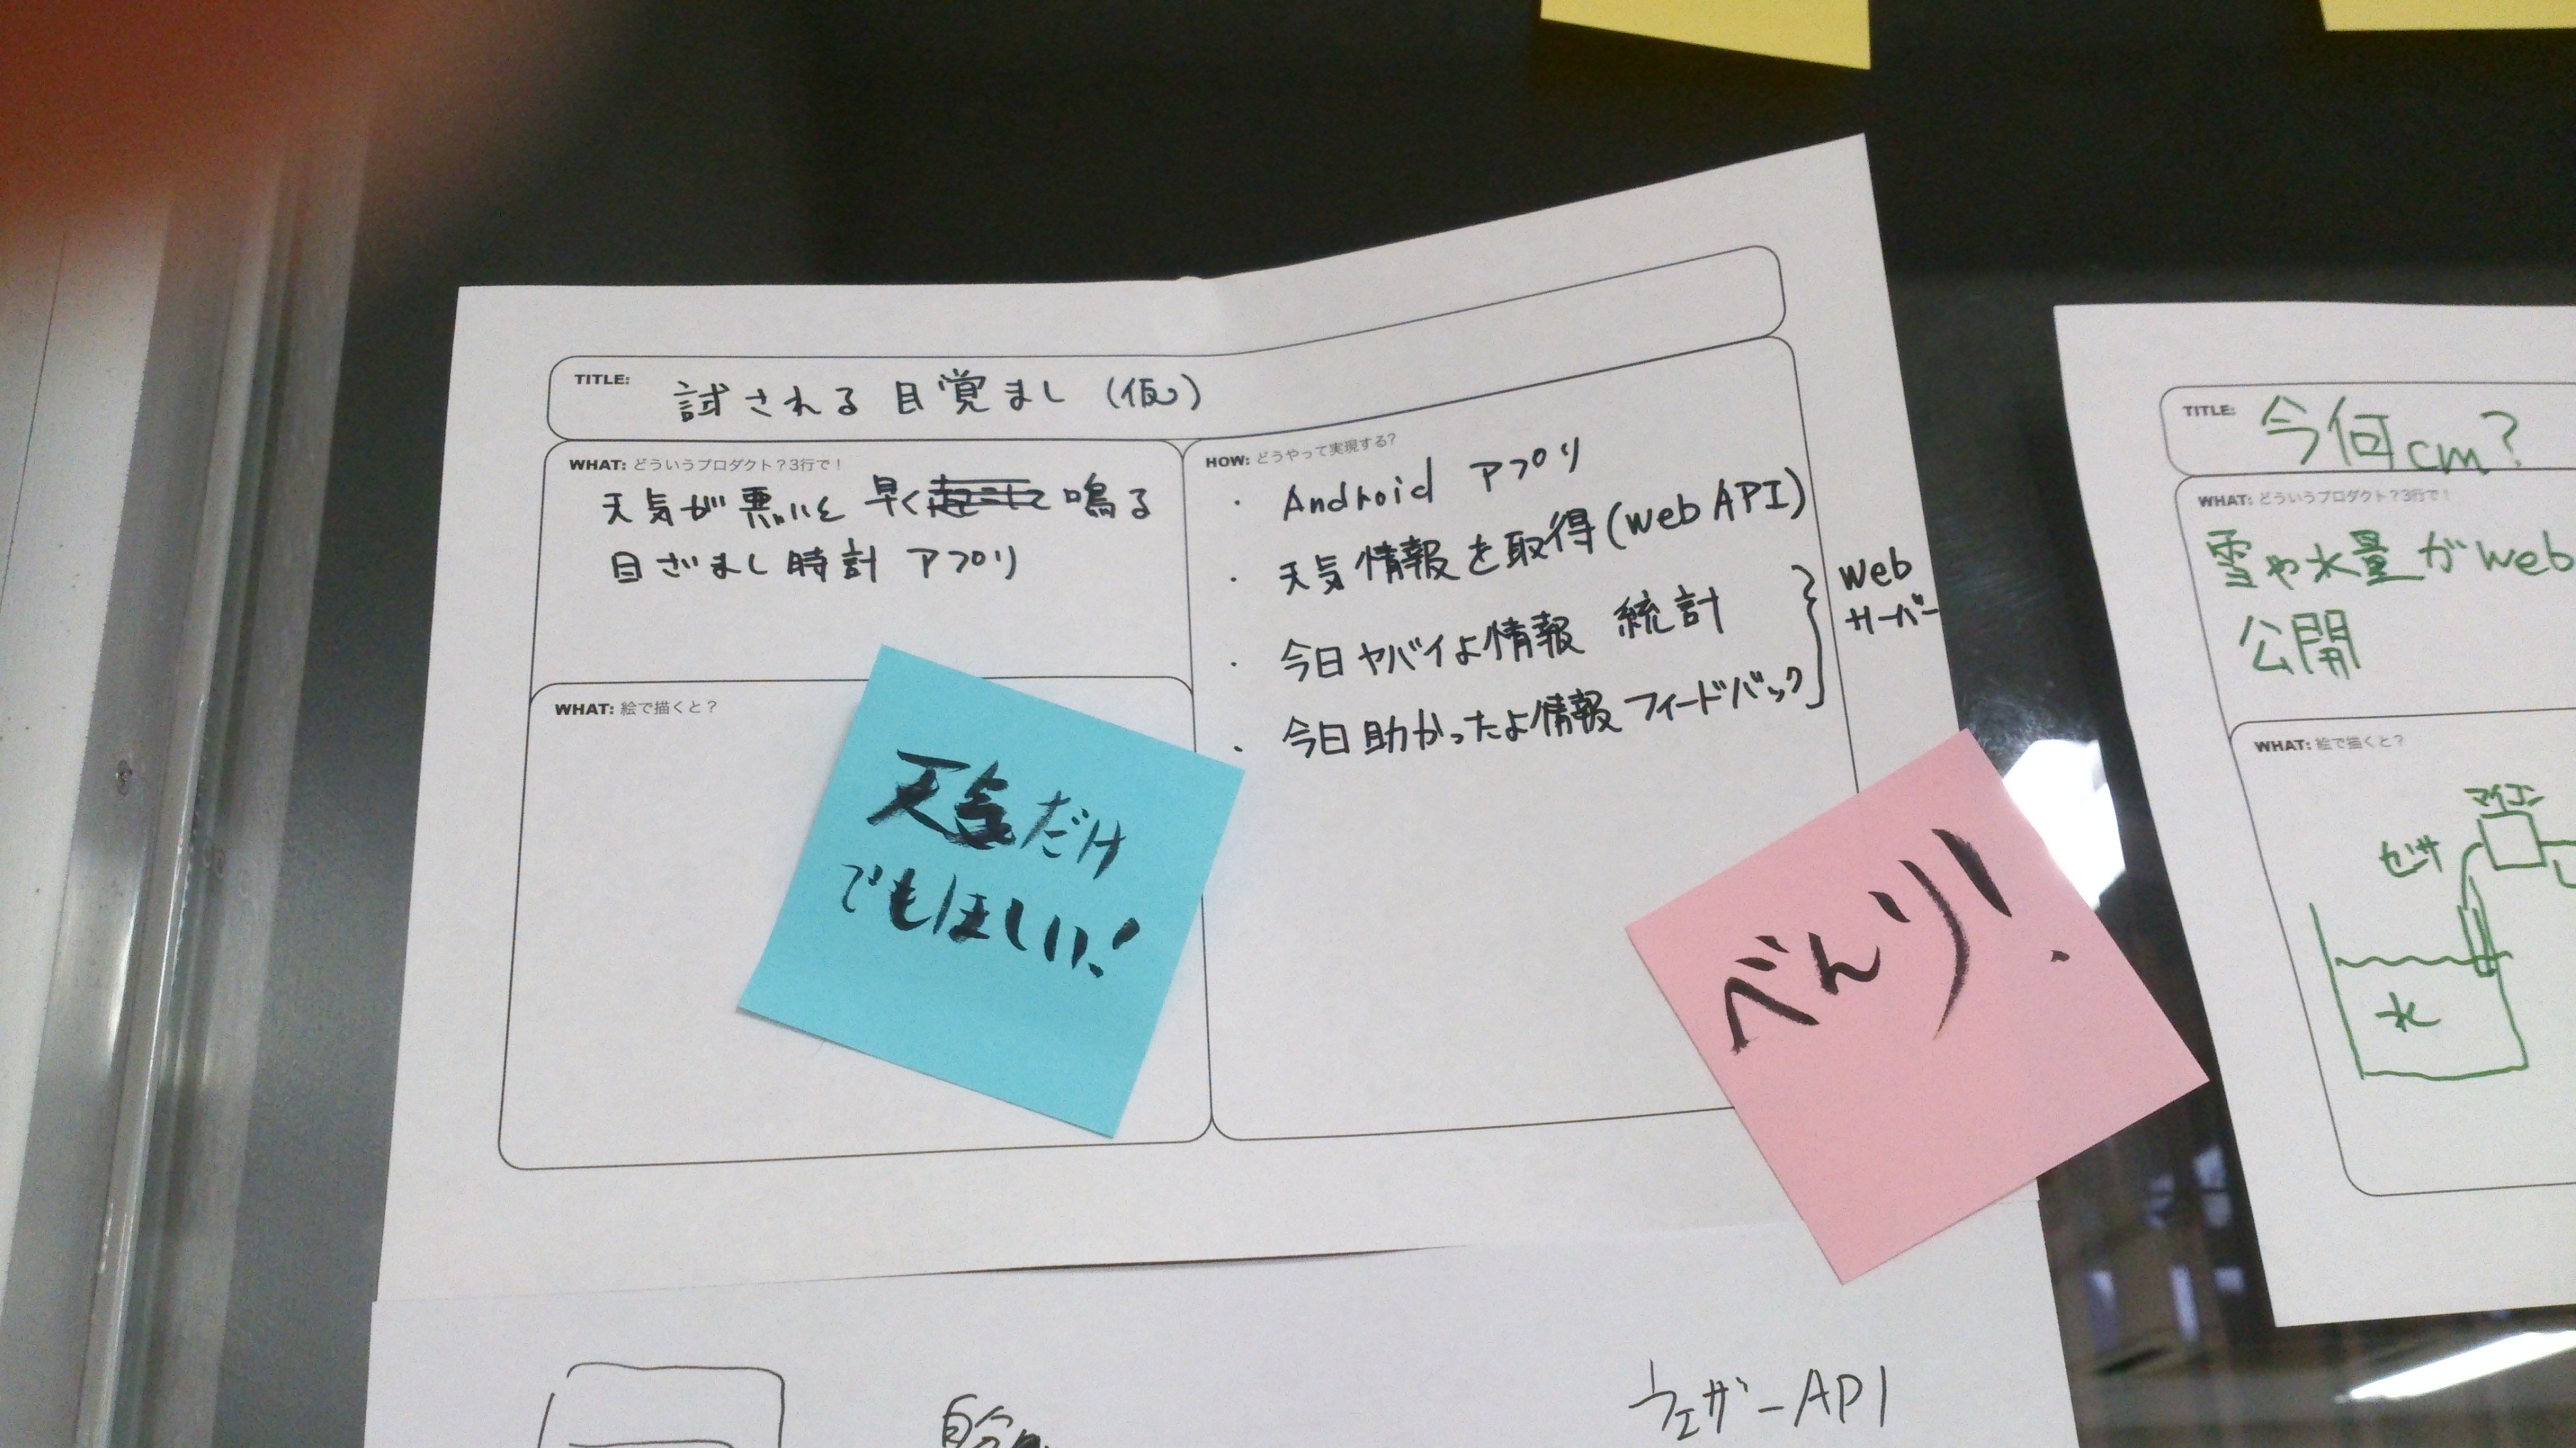 TITLE: 試される目覚まし(仮)
WHAT: どういうプロダクト?3行で!
天気が悪いと早く鳴る
目ざまし時計アプリ
WHAT: 絵で描くと?
天気だけ
でもほしい!
HOW: どうやって実現する?
・Android アプリ
・天気情報を取得(Web API)
・今日ヤバイよ情報 統計
・今日助かったよ情報フィードバック
Web
サーバー
べんり!
TITLE: 今何cm?
WHAT: どういうプロダクト?3行で!
雪や水量がweb
公開
WHAT: 絵で描くと?
マイコン
センサ
水
自分
ウェザーAPI